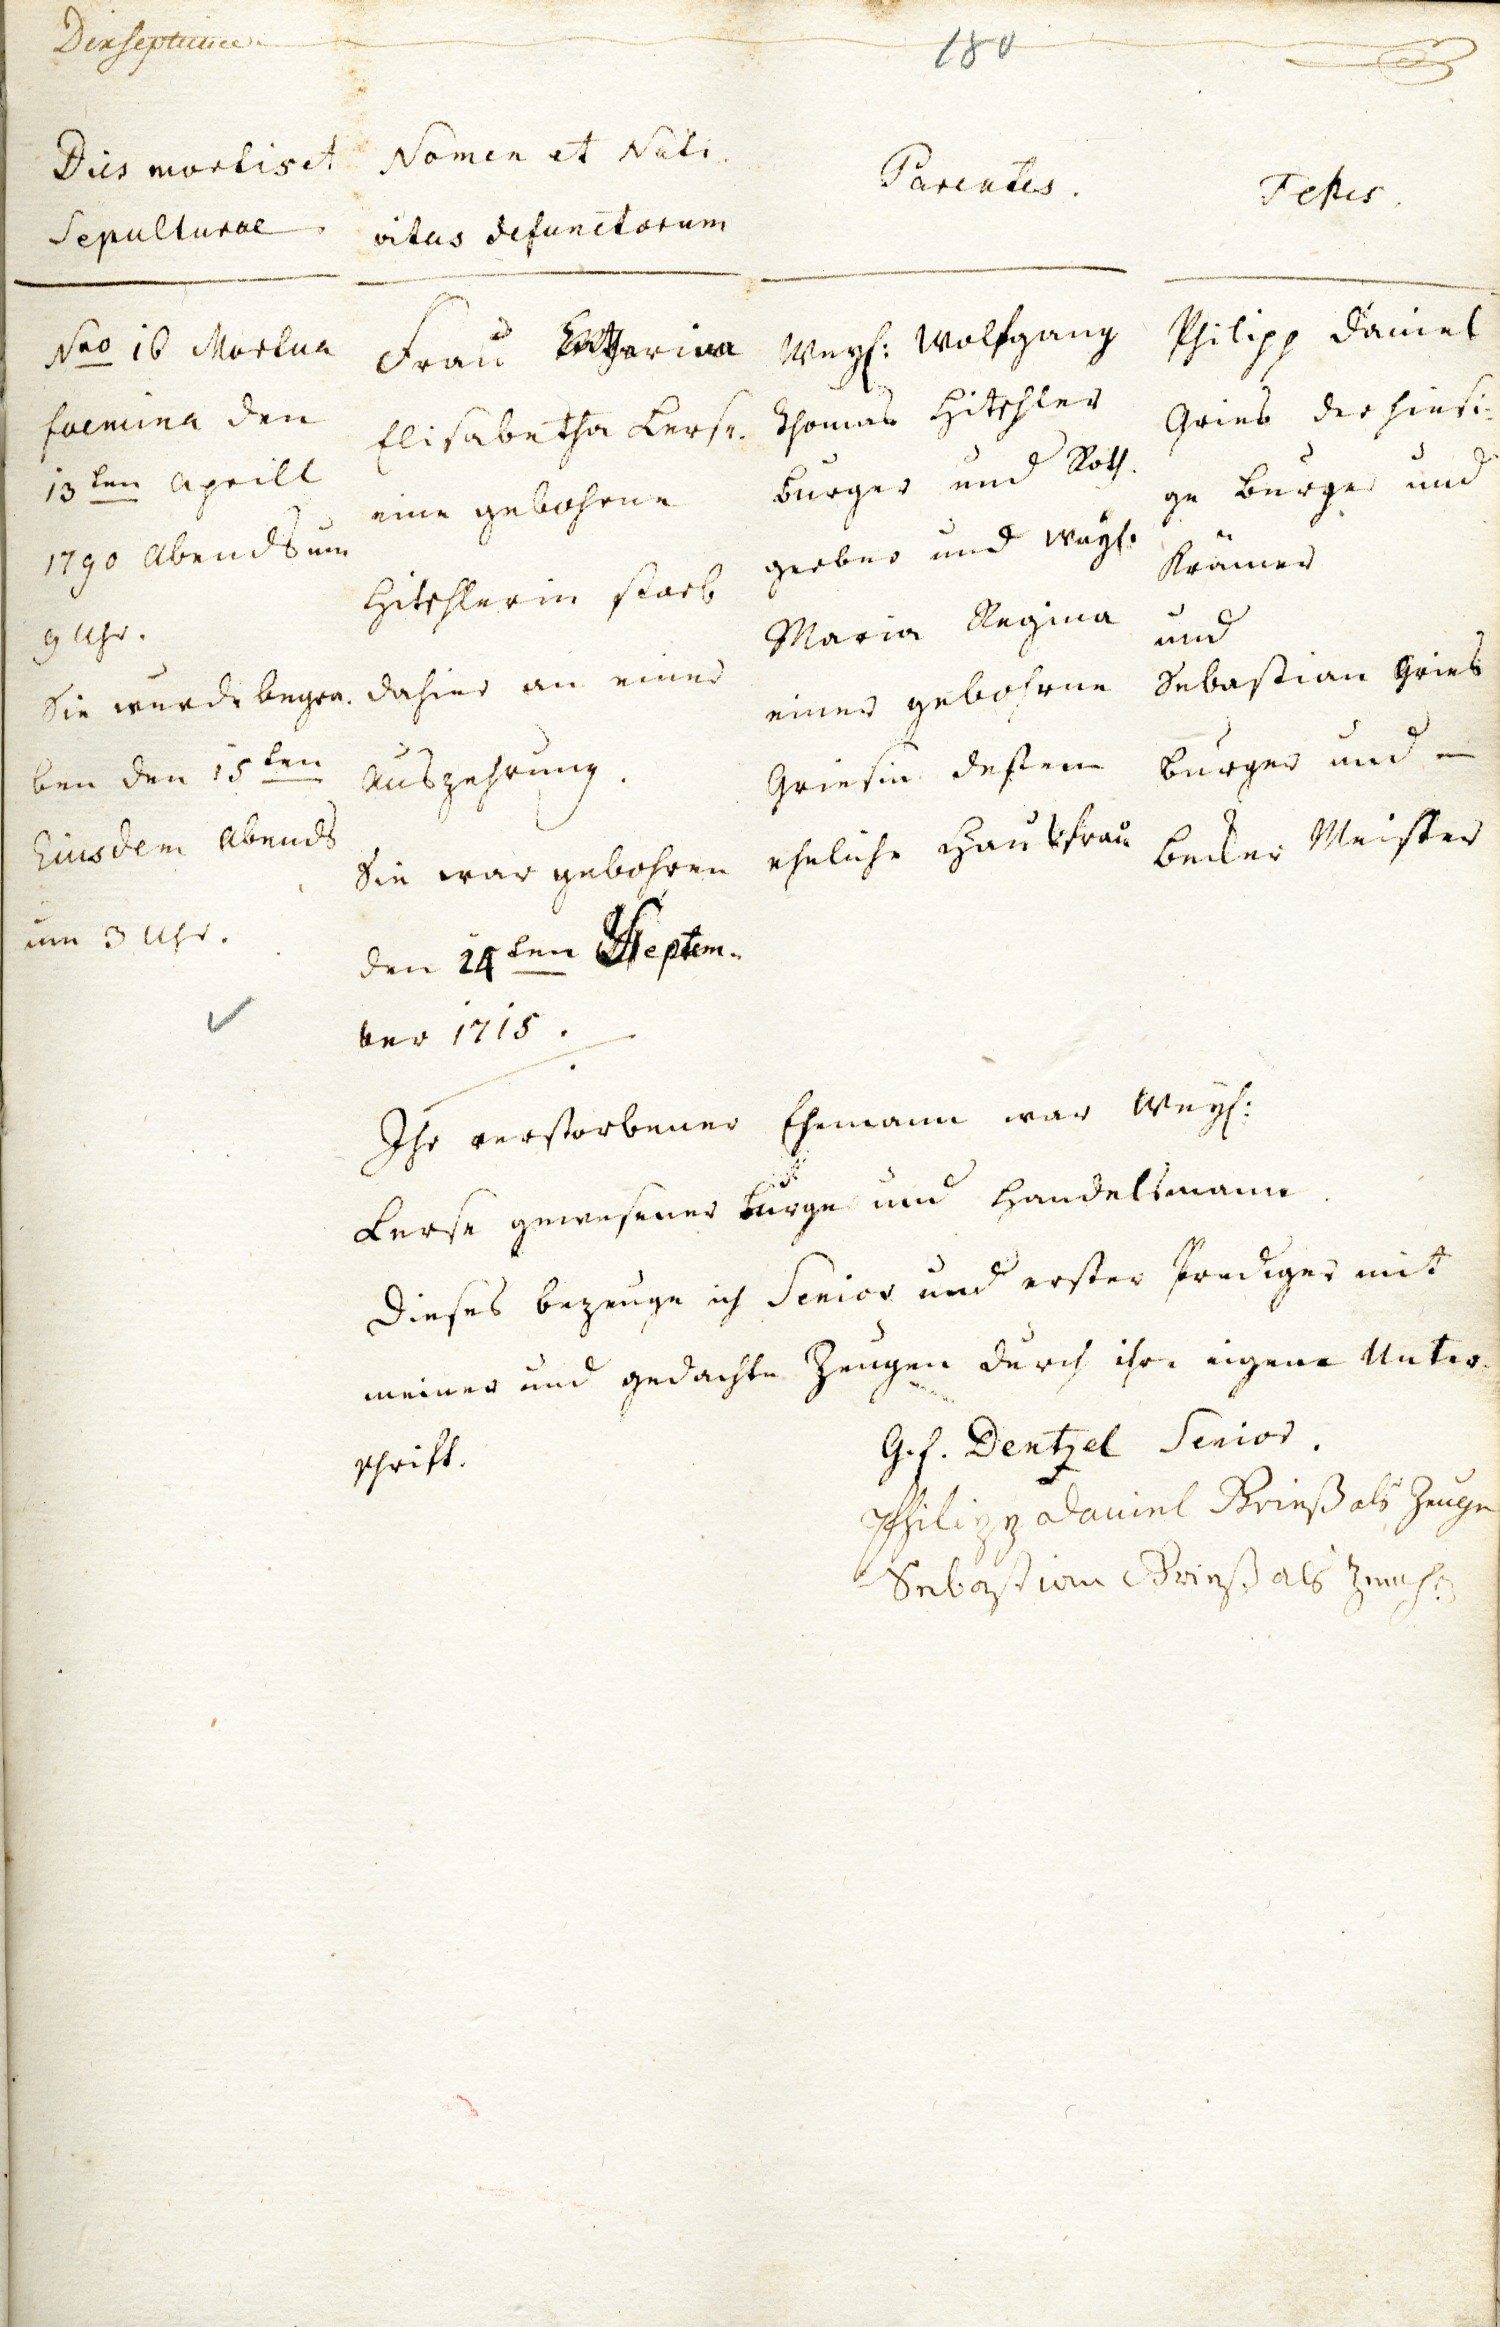 180
Dies mortis et
Sepulturae.
Nomen et Nati-
vitas defunctorum
Parentes.
Testes.
Nro 16 Mortua
foemina den
13ten Aprill
1790 Abends um
9 Uhr.
Sie wurde begra-
ben den 15ten
Eiusdem Abends
um 3 Uhr.
Frau Catharina
Elisabetha Lerse.
eine gebohrne
Hitschlerin starb
dahier an einer
Auszehrung.
Sie war gebohren
den 24ten Septem-
ber 1715.
Weyl: Wolfgang
Thomas Hitschler
Burger und Roth-
gerber und Weyl:
Maria Regina
einer gebohrne
Griesin dessen
eheliche Hausfrau
Philipp Daniel
Gries der hiesi-
ge Burger und
Krämer
und
Sebastian Gries
Burger und
Becker Meister
Ihr verstorbener Ehemann war Weyl:
Lerse gewesener Burger und Handelsmann.
Dieses bezeuge ich Senior und erster Prediger mit
meiner und gedachte Zeugen durch ihre eigene Unter-
schrift.
G. f. Dentzel Senior.
Philipp Daniel Grieß als Zeuge
Sebastian Grieß als Zeuge